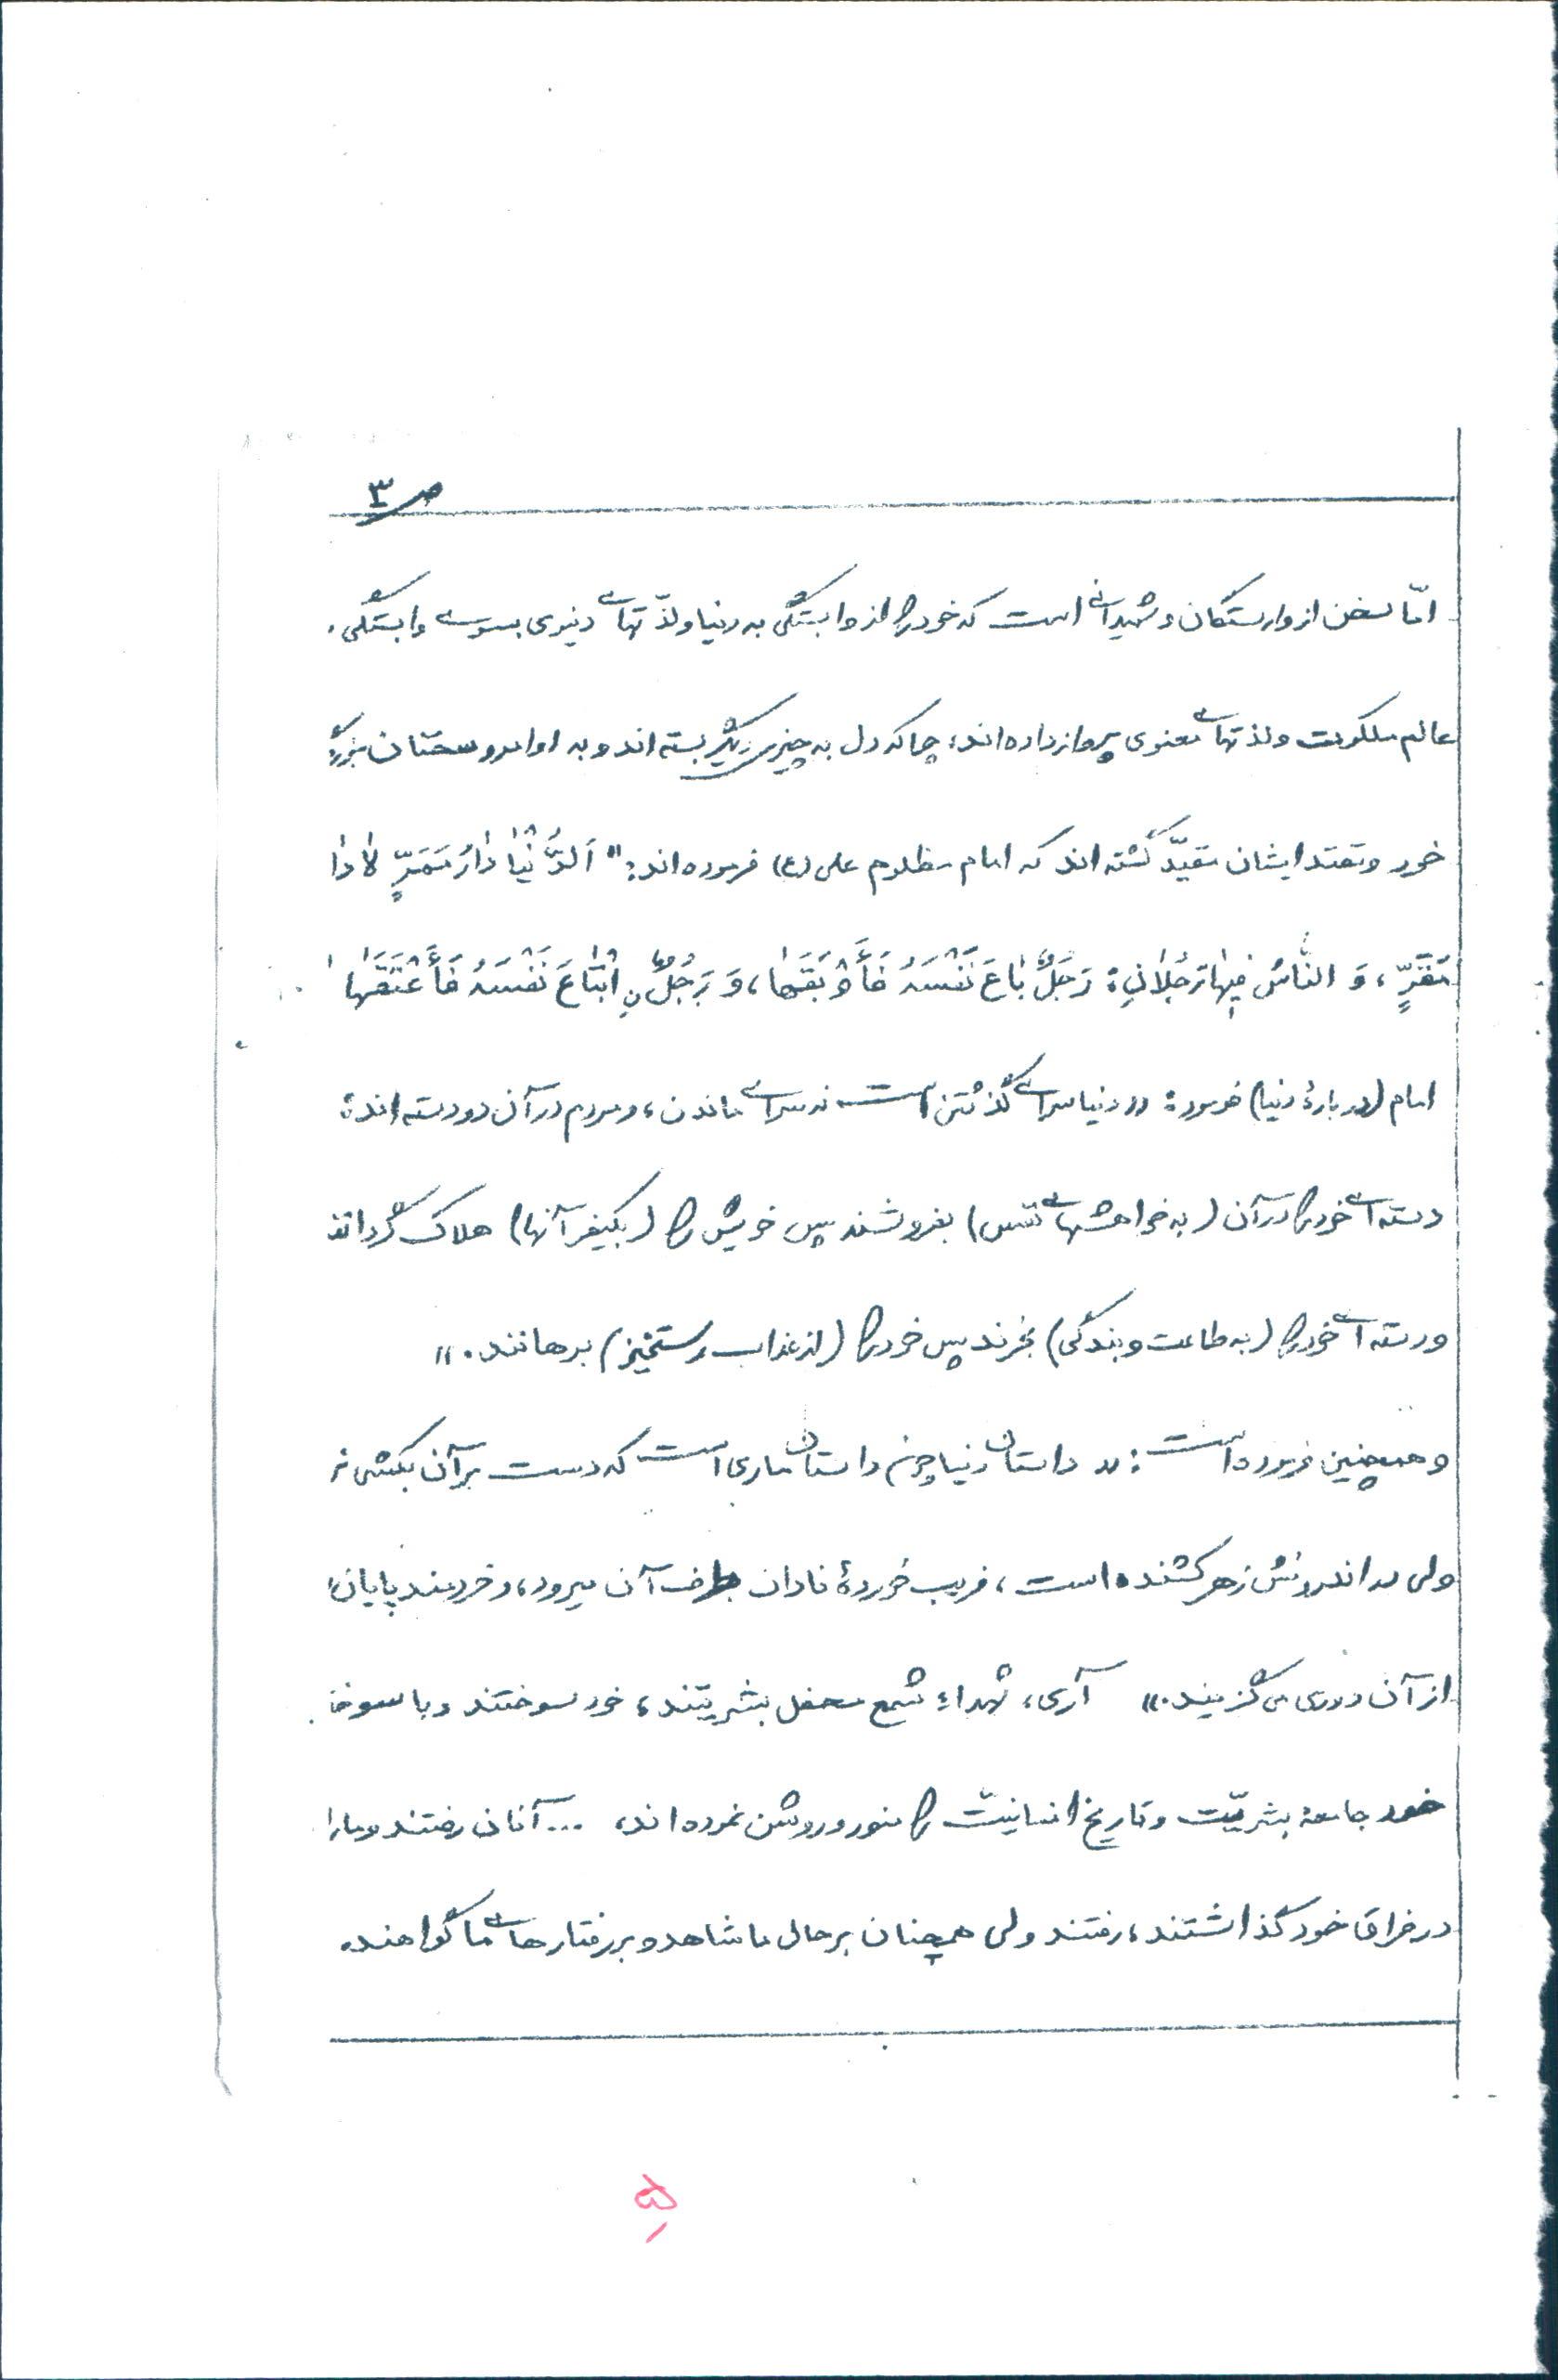 ص ۳
امّا سخن از وارستگان و شهیدانی است که خود را از وابستگی به دنیا و لذّتهای دنیوی بسوی وابستگی،
عالم ملکوت و لذتهای معنوی پرواز داده‌اند، چرا که دل به چیز دیگر بسته‌اند و به اوامر و سخنان بزرگ
خود و مقتدایشان مقیّد گشته‌اند که امام مظلوم علی (ع) فرموده‌اند: "اَلدُّنْیٰا دٰارُ مَمَرٍّ لاٰ دٰا
مَقَرٍّ، وَ النّٰاسُ فیهٰا رَجُلاٰنِ: رَجُلٌ بٰاعَ نَفْسَهُ فَأَوْبَقَهٰا، وَ رَجُلٌ نِ ابْتٰاعَ نَفْسَهُ فَأَعْتَقَهٰا
امام (دربارهٔ دنیا) فرمود: «دنیا سرای گذشتن است نه سرای ماندن، و مردم در آن دو دسته‌اند:
دسته‌ای خود را در آن (به خواهشهای نفس) بفروشند پس خویش را (بکیفر آنها) هلاک گردانند
و دسته‌ای خود را (به طاعت و بندگی) بخرند پس خود را (از عذاب رستخیز) برهانند.»
و همچنین فرموده است: «داستان دنیا چون داستان ماری است که دست بر آن بکشی نر
ولی در اندرونش زهر کشنده است، فریب خوردهٔ نادان بطرف آن میرود، و خردمند پایان
از آن دوری می‌گزیند.» آری، شهداء شمع محفل بشریتند، خود سوختند و با سوختن
خود جامعهٔ بشریّت و تاریخ انسانیّت را منور و روشن نموده‌اند، ... آنان رفتند و ما را
در فراق خود گذاشتند، رفتند ولی همچنان بر حال ما شاهد و بر رفتارهای ما گواهند.